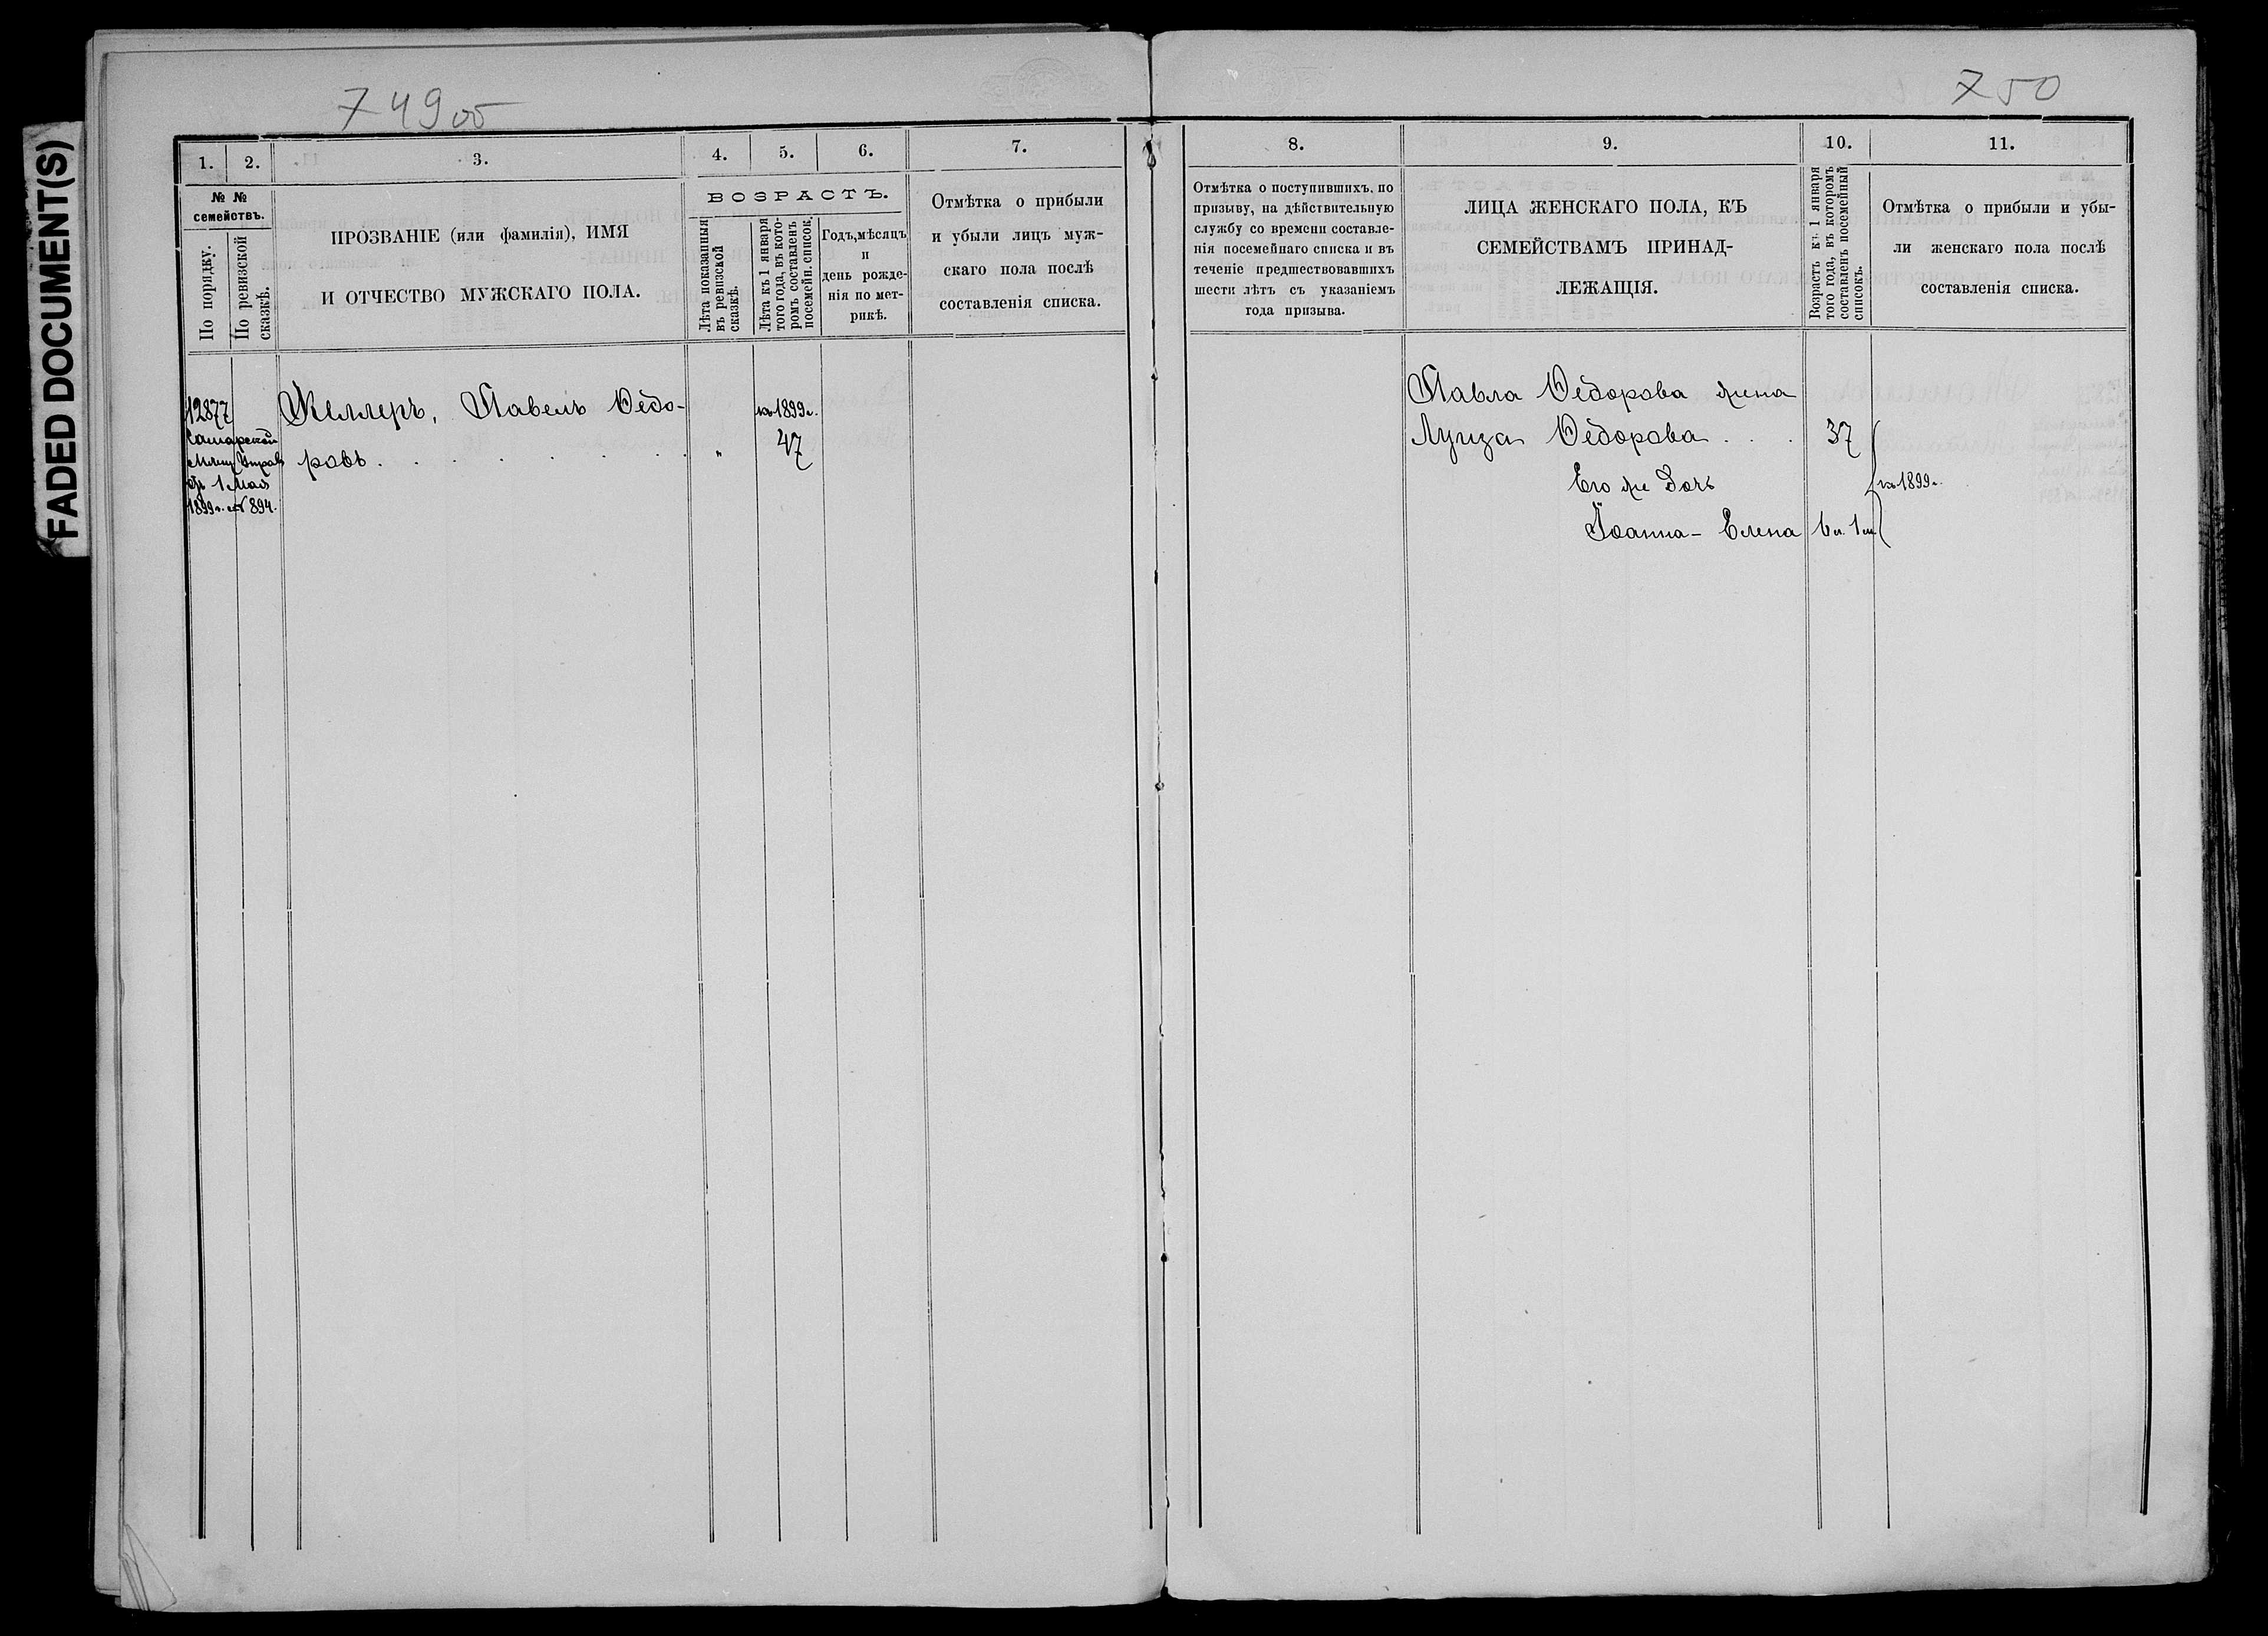 FADED DOCUMENT(S)
749об
1. 2. 3. 4. 5. 6. 7.
№ №
семействъ.
По порядку.
По ревизской
сказкѣ.
ПРОЗВАНІЕ (или фамилія), ИМЯ
И ОТЧЕСТВО МУЖСКАГО ПОЛА.
ВОЗРАСТЪ.
Лѣта показанныя
въ ревизской
сказкѣ.
Лѣта къ 1 января
того года, въ кото-
ромъ составленъ
посемейн. список.
Годъ, мѣсяцъ
и
день рожде-
нія по мет-
рикѣ.
Отмѣтка о прибыли
и убыли лицъ муж-
скаго пола послѣ
составленія списка.
12877
Самарской
Мѣщ. Управ.
1 Мая
1899 г. № 894.
Келлеръ, Павелъ Ѳедо-
ровъ . . . . . . .
"
къ 1899 г.
47
750
8. 9. 10. 11.
Отмѣтка о поступившихъ, по
призыву, на дѣйствительную
службу со времени составле-
нія посемейнаго списка и въ
теченіе предшествовавшихъ
шести лѣтъ съ указаніемъ
года призыва.
ЛИЦА ЖЕНСКАГО ПОЛА, КЪ
СЕМЕЙСТВАМЪ ПРИНАД-
ЛЕЖАЩІЯ.
Возрастъ къ 1 января
того года, въ которомъ
составленъ посемейный
списокъ.
Отмѣтка о прибыли и убы-
ли женскаго пола послѣ
составленія списка.
Павла Ѳедорова жена
Луиза Ѳедорова . . . 37
Его же дочь
къ 1899 г.
Іоанна-Елена 6 л. 1 м.